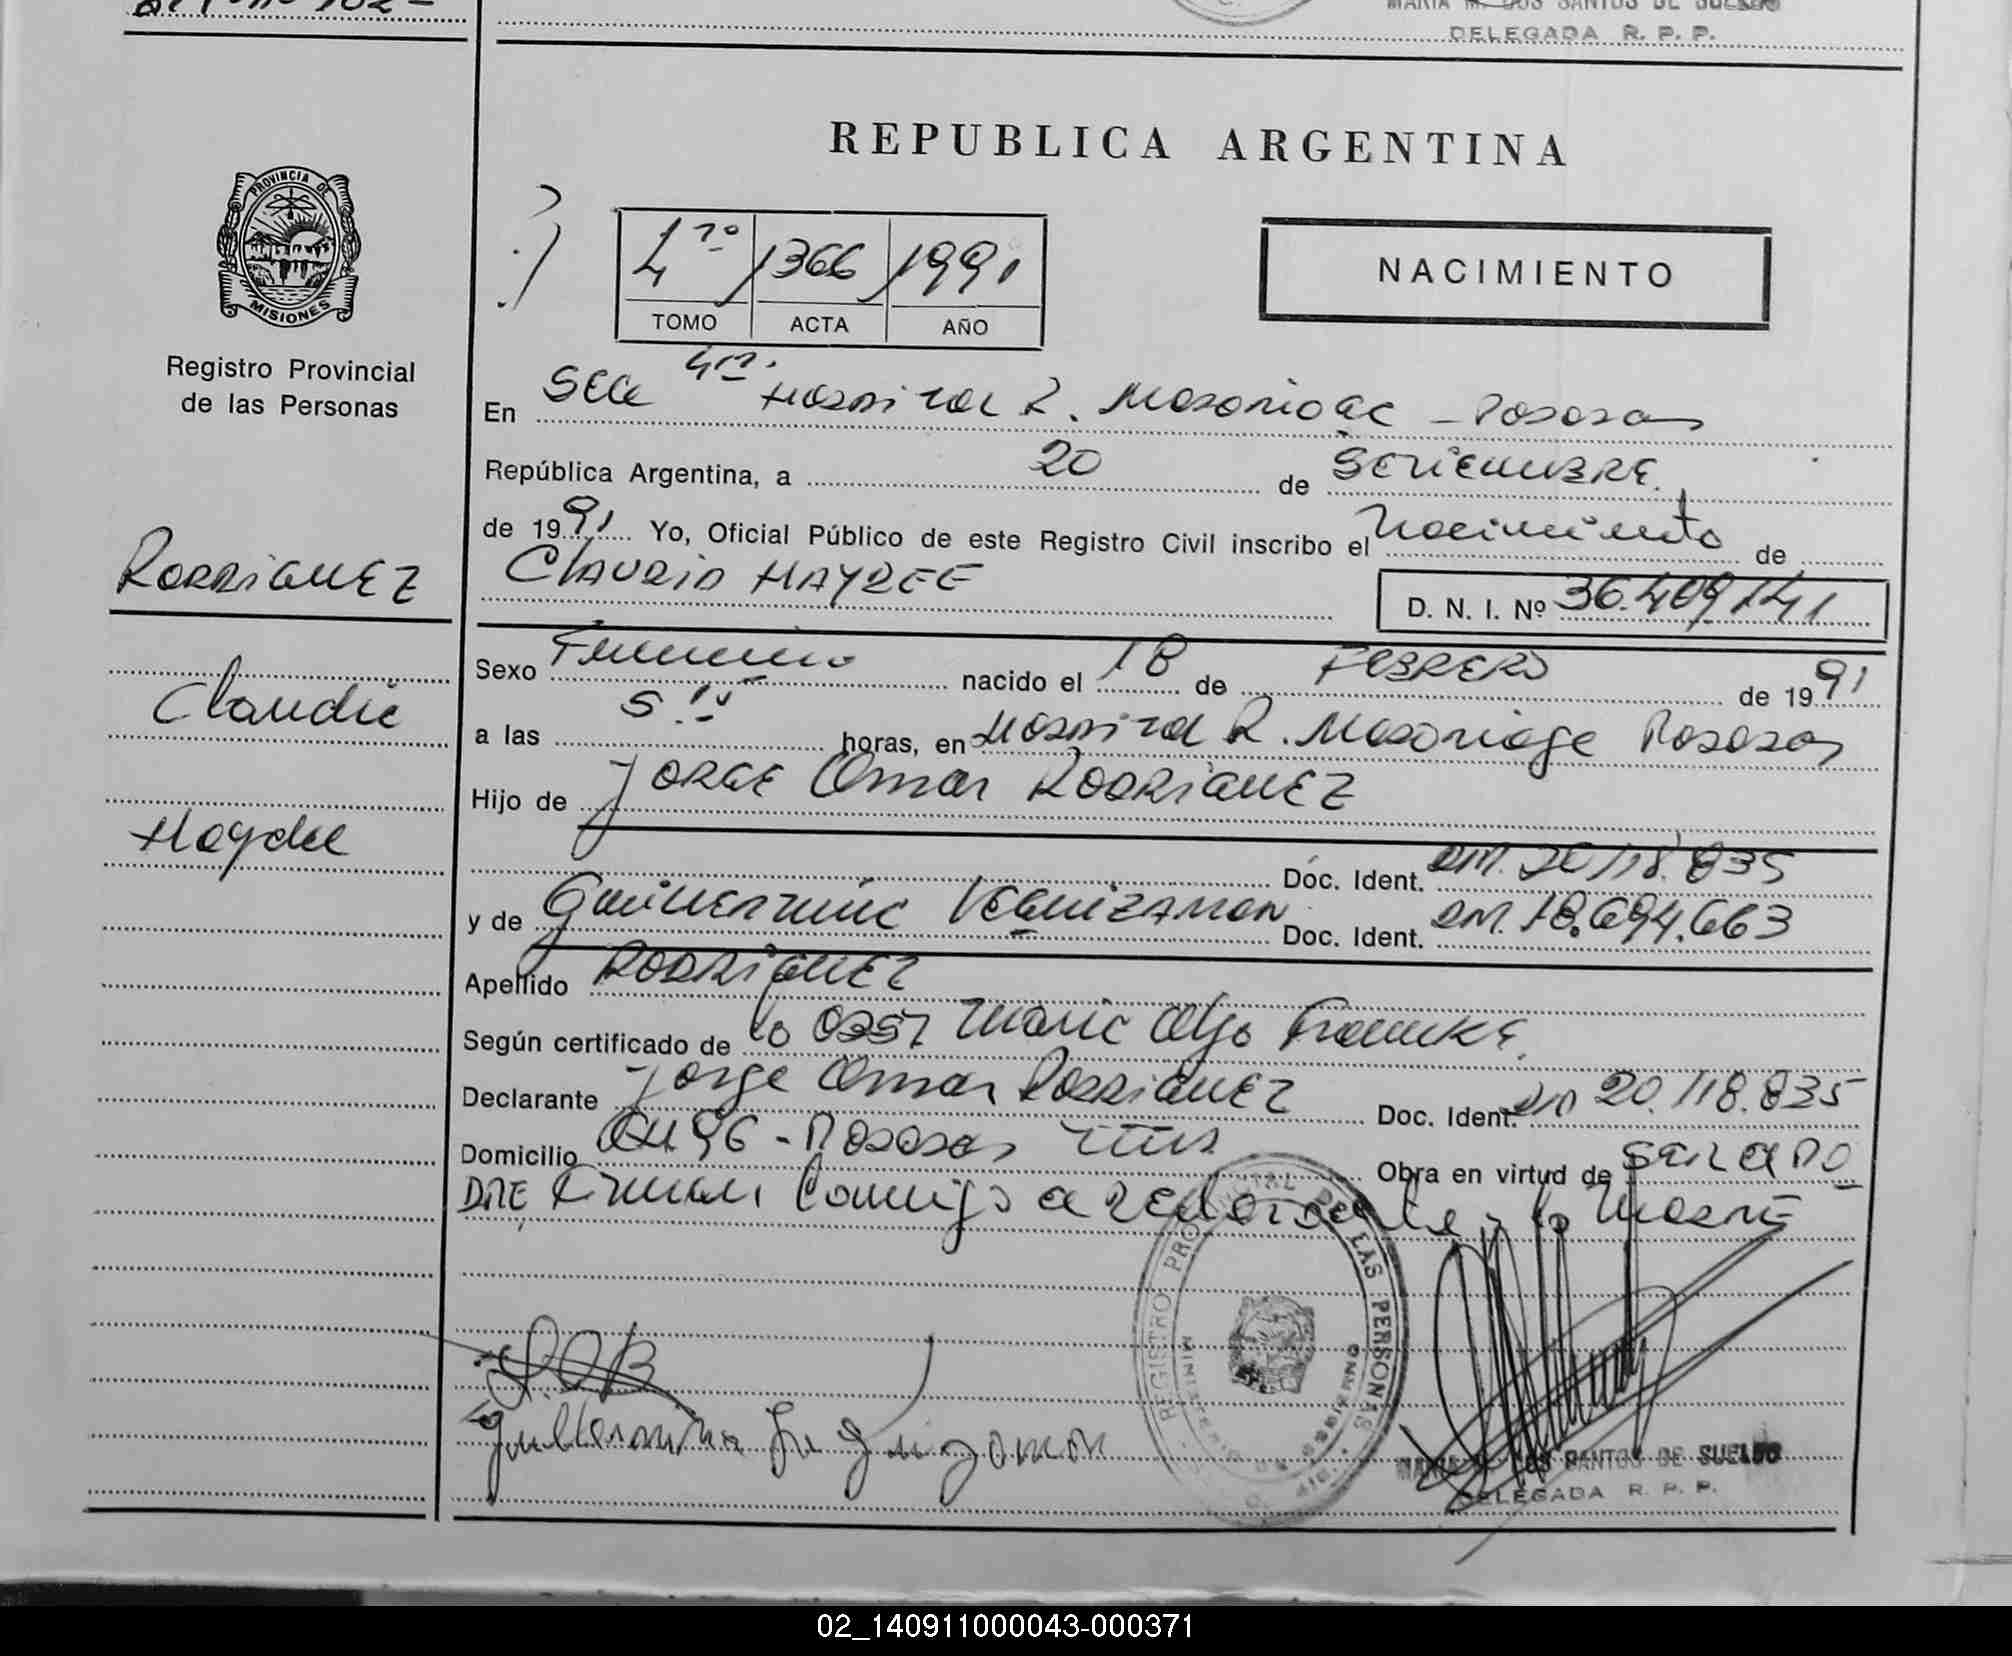 MARIA M. DOS SANTOS DE SUELDO
DELEGADA R. P. P.
REPUBLICA ARGENTINA
PROVINCIA DE
MISIONES
Registro Provincial
de las Personas
4to 1366 1991
TOMO ACTA AÑO
NACIMIENTO
En Secc 4ta. Hospital R. Madariaga - Posadas
República Argentina, a 20 de SETIEMBRE.
de 1991 Yo, Oficial Público de este Registro Civil inscribo el Nacimiento de
CLAUDIA HAYDEE
D. N. I. Nº 36.409.141
RODRIGUEZ
Claudia
Haydee
Sexo Femenino nacido el 18 de FEBRERO de 1991
a las 5. horas, en Hospital R. Madariaga Posadas
Hijo de JORGE Omar RODRIGUEZ
Doc. Ident. DNI. 20.118.835
y de Guillermina LEGUIZAMON Doc. Ident. DNI. 18.694.663
Apellido RODRIGUEZ
Según certificado de la Obst Maria Olga Franke.
Declarante Jorge Omar RODRIGUEZ Doc. Ident. DNI 20.118.835
Domicilio CH 96 - Posadas Mnes Obra en virtud de ser el PA
DRE Firman Conmigo el declarante y la MADRE
REGISTRO PROVINCIAL DE LAS PERSONAS
MINISTERIO DE GOBIERNO
Guillermina Leguizamon
MARIA M. DOS SANTOS DE SUELDO
DELEGADA R. P. P.
02_140911000043-000371